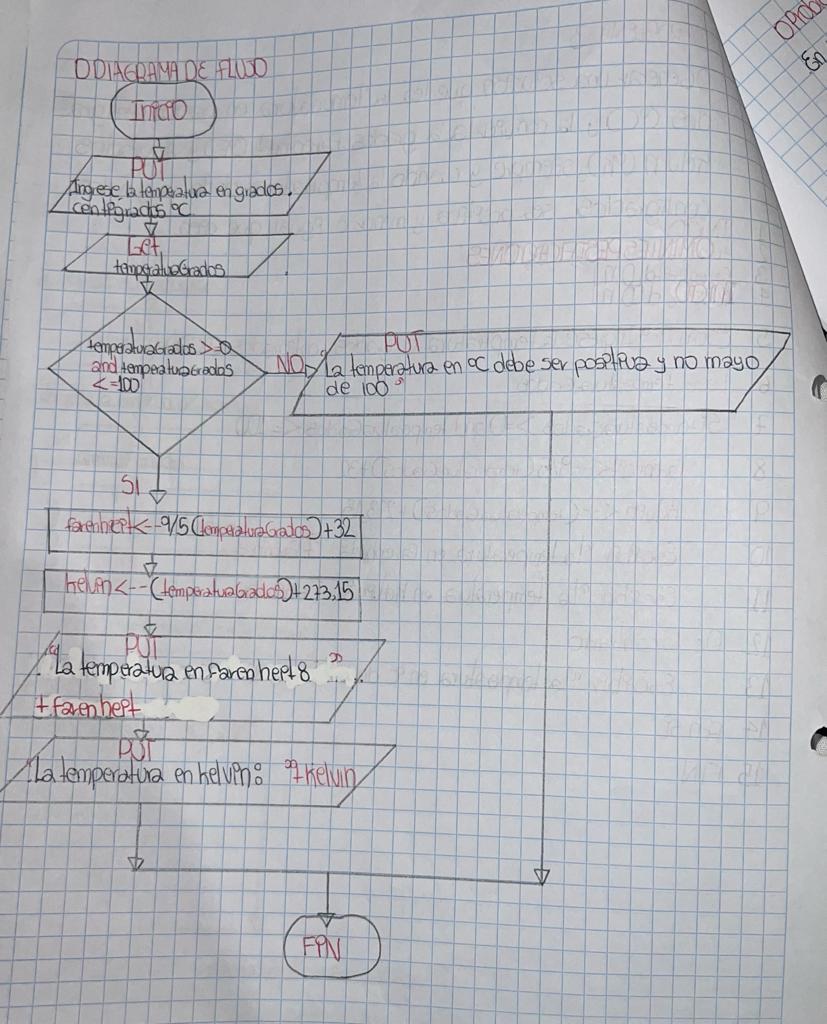 DIAGRAMA DE FLUJO
Inicio
PUT
Ingrese la temperatura en grados
centigrados °C
Get
temperaturaGrados
temperaturaGrados >=0
and temperaturaGrados
<=100
NO
PUT
"La temperatura en °C debe ser positiva y no mayo
de 100"
SI
farenheit<--9/5(temperaturaGrados)+32
kelvin<--(temperaturaGrados)+273,15
PUT
"La temperatura en farenheit: "
+farenheit
PUT
"La temperatura en kelvin: "+kelvin
FIN
En